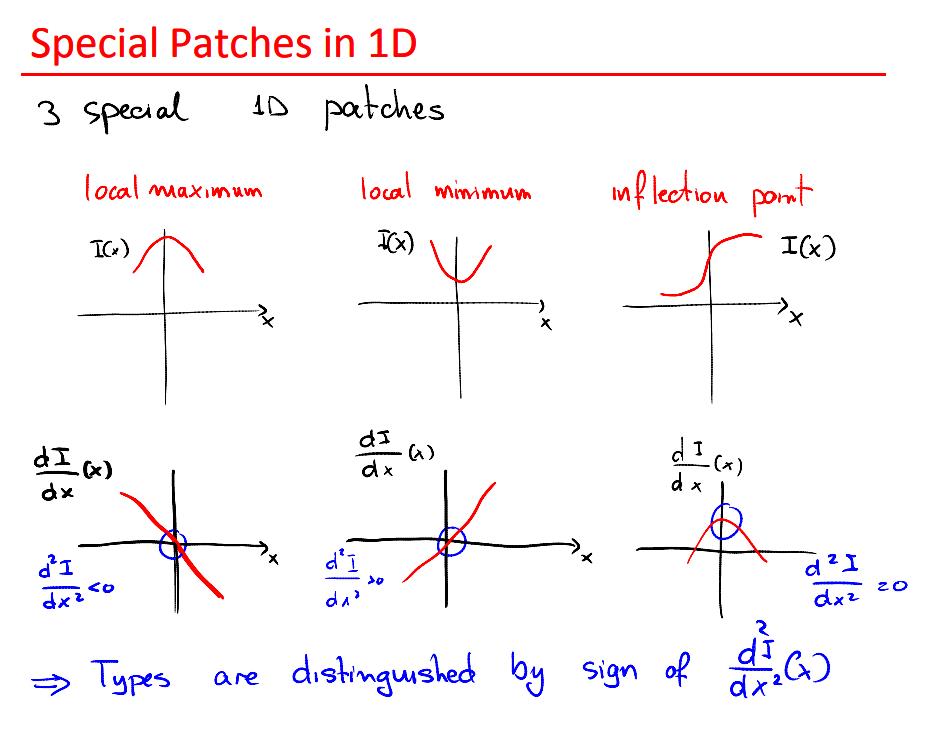 Special Patches in 1D
3 special 1D patches
local maximum local minimum inflection point
I(x) I(x) I(x)
x x x
dI/dx (x) dI/dx (x) dI/dx (x)
x x
d²I/dx² <0 d²I/dx² >0 d²I/dx² =0
⇒ Types are distinguished by sign of d²I/dx² (x)